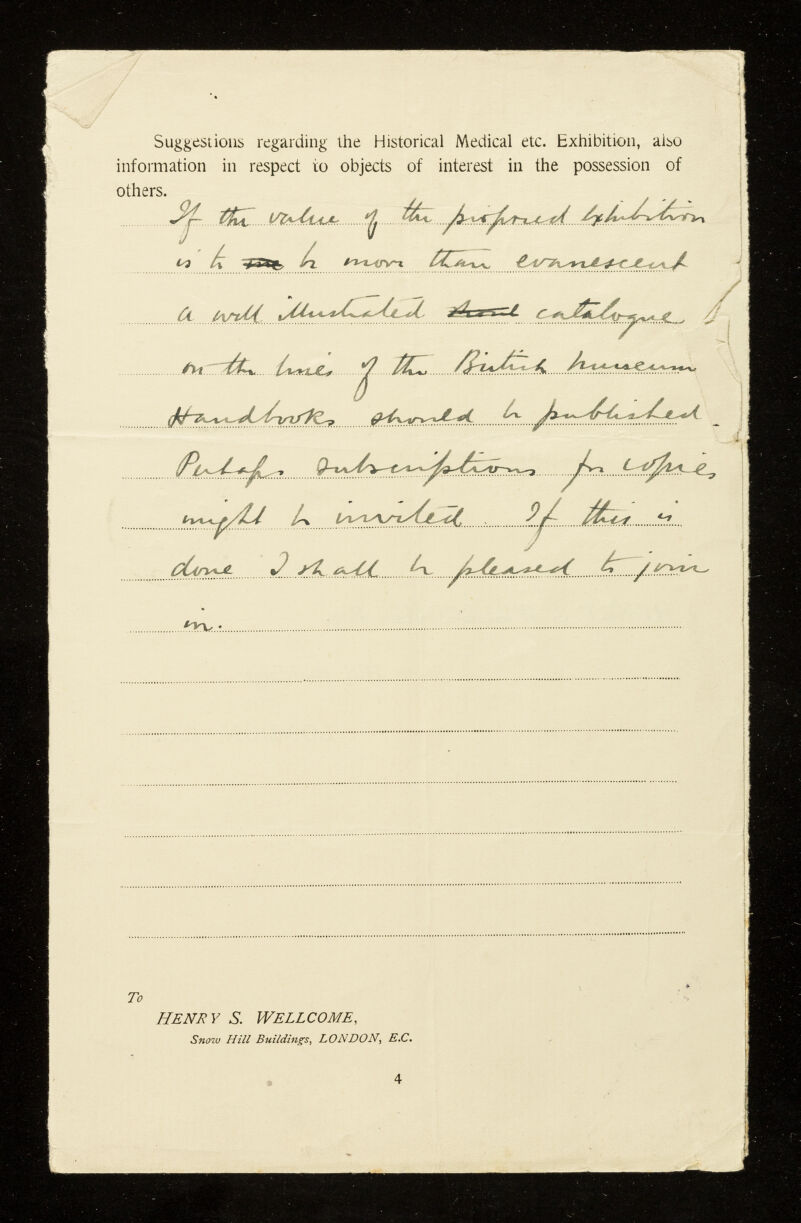 Suggestions regarding the Historical Medical etc. Exhibition, also
information in respect to objects of interest in the possession of
others.
If the value of the proposed exhibition
is to be more than evanescent
a well illustrated catalogue
on the lines of the British Museum
Handbooks should be published.
Perhaps subscriptions for copies
might be invited. If this is
done I shall be pleased to join
in.
To
HENRY S. WELLCOME,
Snow Hill Buildings, LONDON, E.C.
4